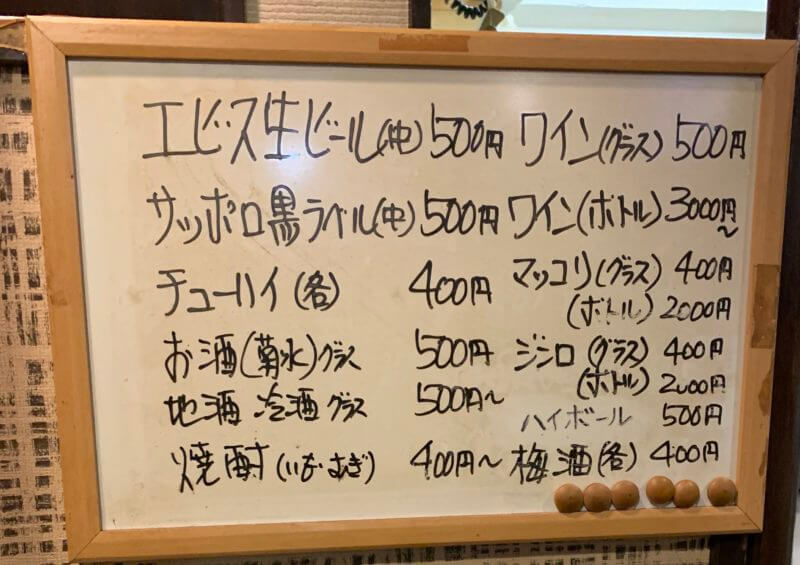 エビス生ビール(中) 500円
サッポロ黒ラベル(中) 500円
チューハイ(各) 400円
お酒(菊水)グラス 500円
地酒 冷酒 グラス 500円～
焼酎(いも むぎ) 400円～
ワイン(グラス) 500円
ワイン(ボトル) 3000円～
マッコリ(グラス) 400円
(ボトル) 2000円
ジンロ(グラス) 400円
(ボトル) 2000円
ハイボール 500円
梅酒(各) 400円